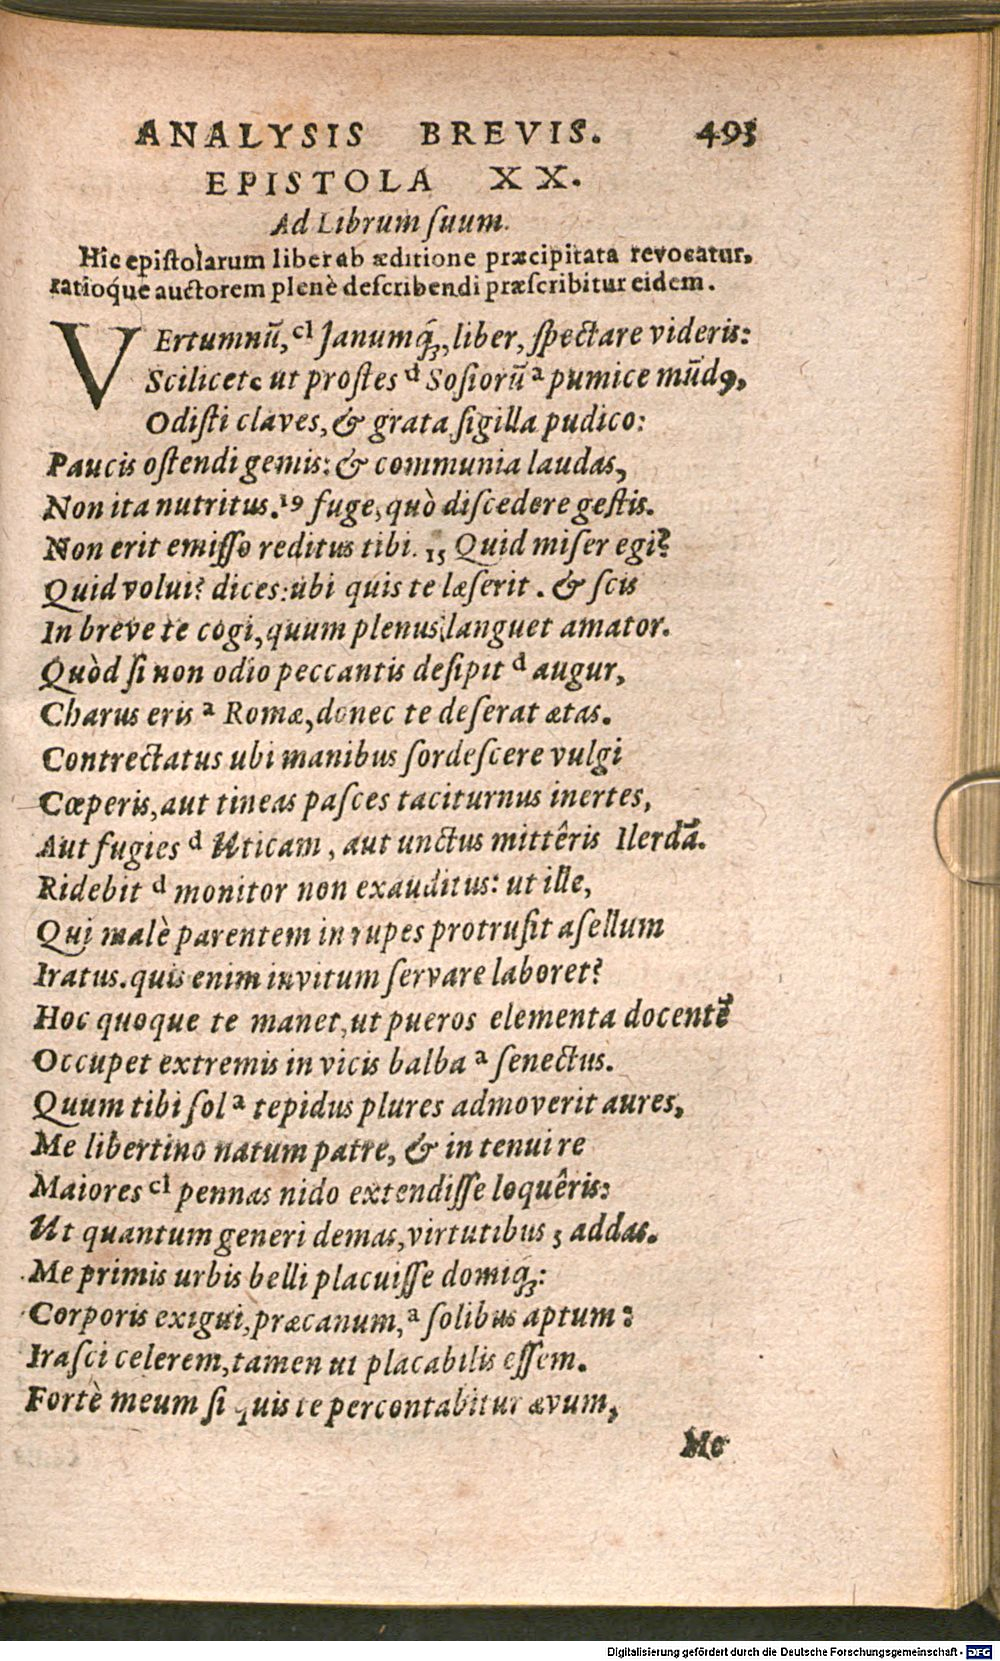 ANALYSIS BREVIS. 493
EPISTOLA XX.
Ad Librum ſuum.
Hic epiſtolarum liber ab æditione præcipitata revocatur,
ratioq́ue auctorem plenè deſcribendi præſcribitur eidem.
VErtumnū, cl Janumq́ȝ, liber, ſpectare videris:
Scilicet c ut proſtes d Soſiorū a pumice mūdꝰ,
Odiſti claves, & grata ſigilla pudico:
Paucis oſtendi gemis: & communia laudas,
Non ita nutritus. 19 fuge, quò diſcedere geſtis.
Non erit emiſſo reditus tibi. 15 Quid miſer egi?
Quid volui? dices: ubi quis te læſerit. & ſcis
In breve te cogi, quum plenus languet amator.
Quòd ſi non odio peccantis deſipit d augur,
Charus eris a Romæ, donec te deſerat ætas.
Contrectatus ubi manibus ſordeſcere vulgi
Cœperis, aut tineas paſces taciturnus inertes,
Aut fugies d Uticam, aut unctus mittêris Ilerdā.
Ridebit d monitor non exauditus: ut ille,
Qui malè parentem in rupes protruſit aſellum
Iratus. quis enim invitum ſervare laboret?
Hoc quoque te manet, ut pueros elementa docentē
Occupet extremis in vicis balba a ſenectus.
Quum tibi ſol a tepidus plures admoverit aures,
Me libertino natum patre, & in tenui re
Maiores cl pennas nido extendiſſe loquêris:
Ut quantum generi demas, virtutibus 3 addas.
Me primis urbis belli placuiſſe domiq́ȝ:
Corporis exigui, præcanum, a ſolibus aptum:
Iraſci celerem, tamen ut placabilis eſſem.
Fortè meum ſi quis te percontabitur ævum,
Me
Digitalisierung gefördert durch die Deutsche Forschungsgemeinschaft - DFG